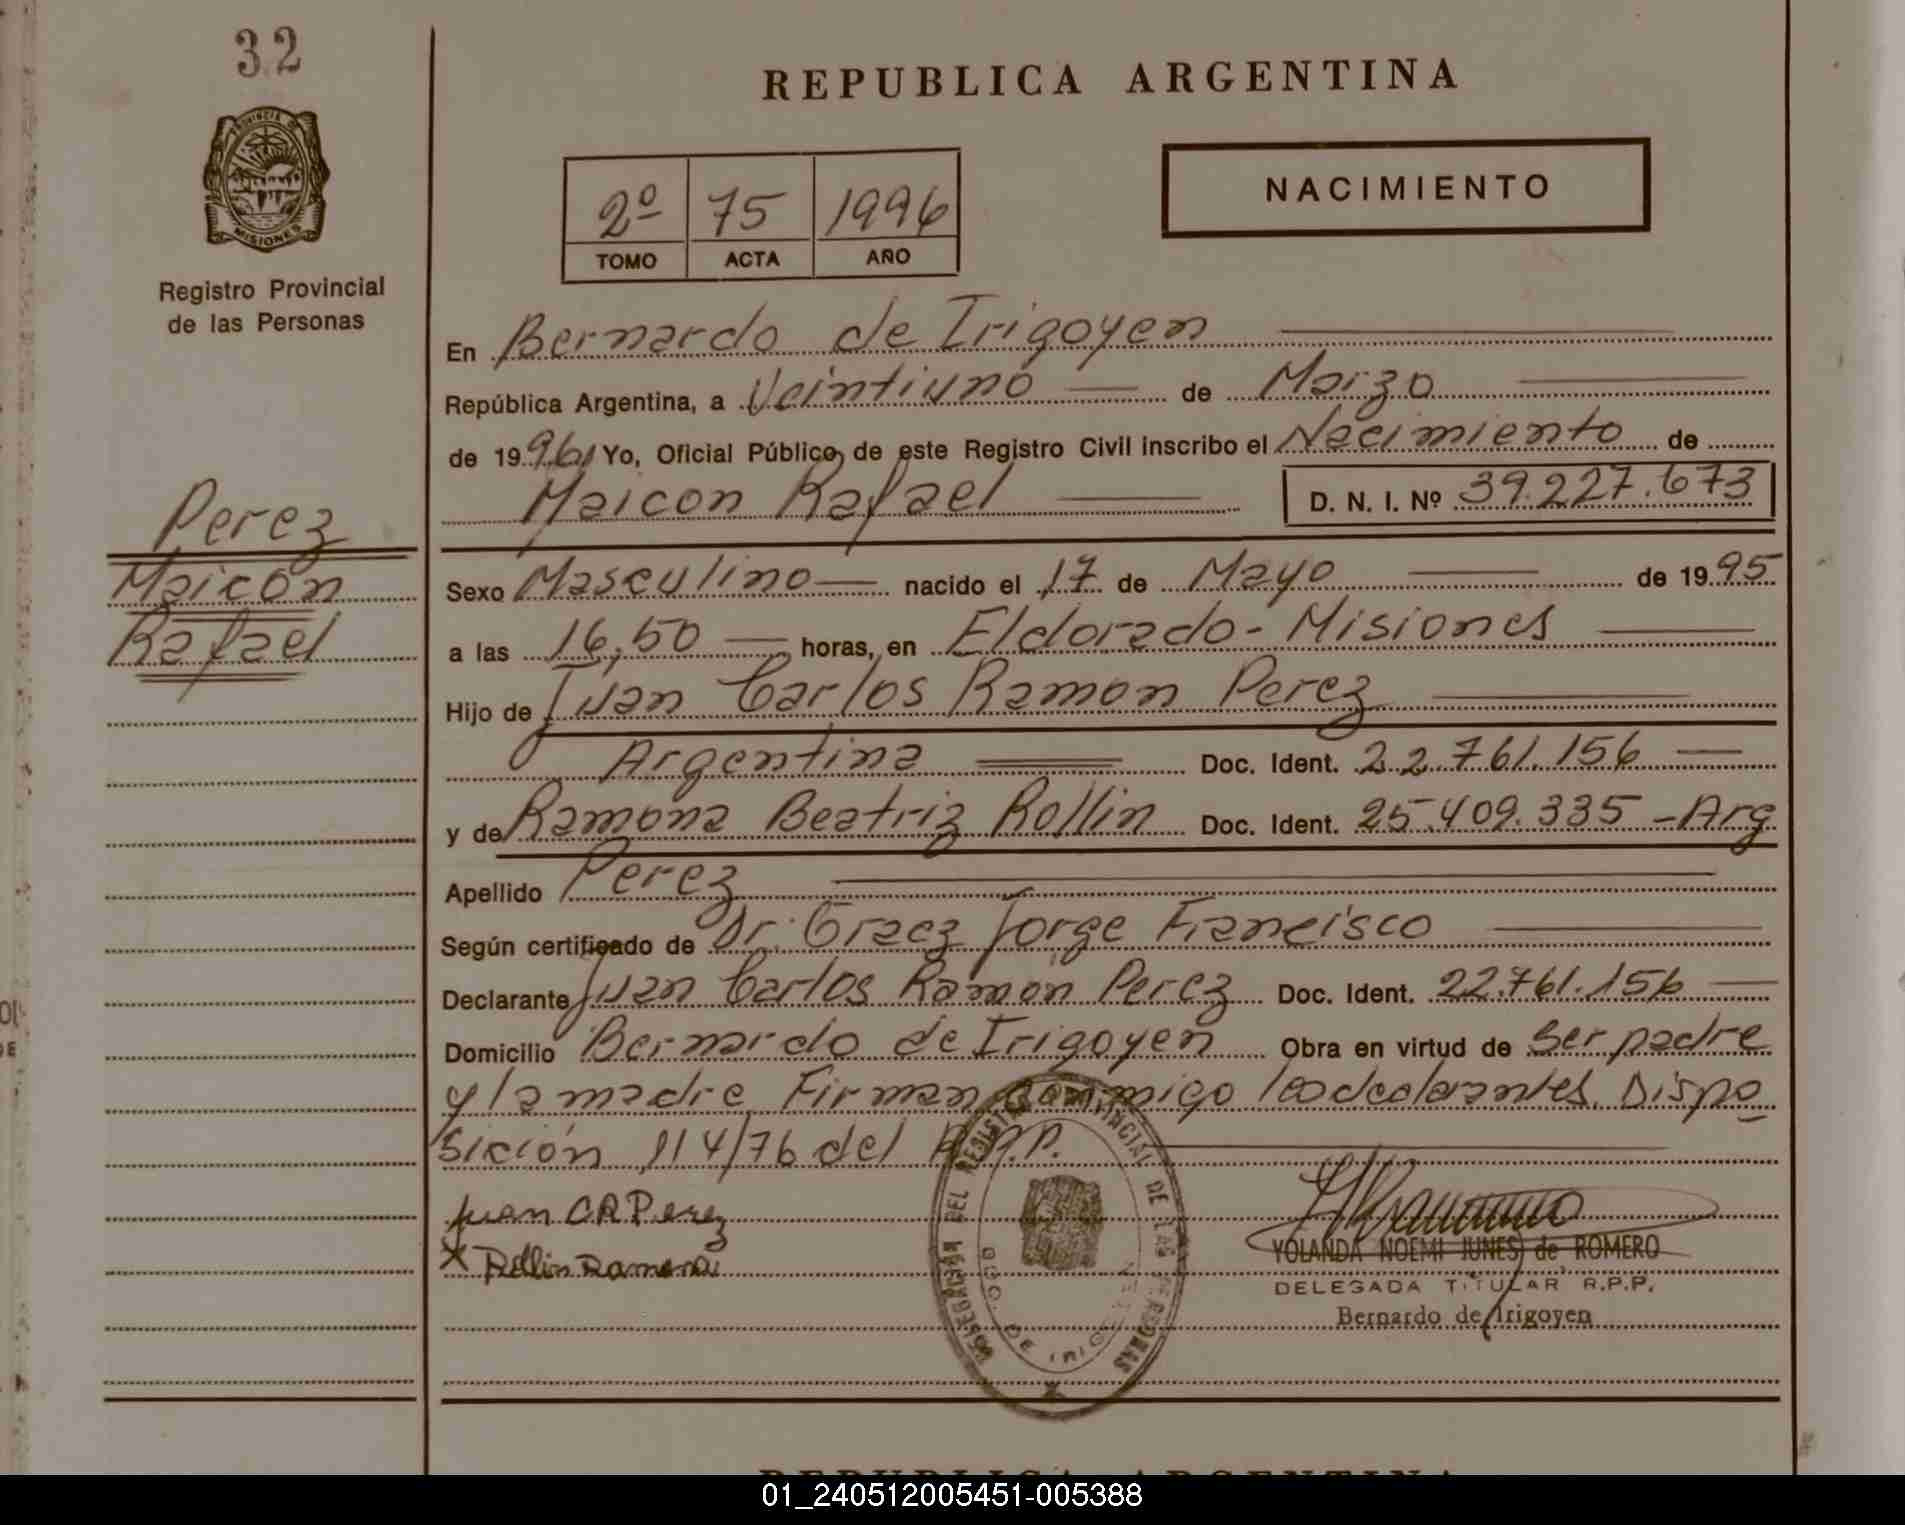 32
REPUBLICA ARGENTINA
PROVINCIA DE
MISIONES
Registro Provincial
de las Personas
2º 75 1996
TOMO ACTA AÑO
NACIMIENTO
En Bernardo de Irigoyen
República Argentina, a Veintiuno de Marzo
de 1996 Yo, Oficial Público de este Registro Civil inscribo el Nacimiento de
Maicon Rafael D. N. I. Nº 39.227.673
Perez
Maicon
Rafael
Sexo Masculino nacido el 17 de Mayo de 1995
a las 16,50 horas, en Eldorado - Misiones
Hijo de Juan Carlos Ramon Perez
Argentina Doc. Ident. 22.761.156
y de Ramona Beatriz Rollin Doc. Ident. 25.409.335 - Arg
Apellido Perez
Según certificado de Dr. Graez Jorge Francisco
Declarante Juan Carlos Ramon Perez Doc. Ident. 22.761.156
Domicilio Bernardo de Irigoyen Obra en virtud de ser padre
y la madre Firman conmigo Dispo
sición 114/76 del R.P.P.
Juan C R Perez
X Rollin Ramona
DEL REGISTRO PROVINCIAL DE LAS PERSONAS
BDO. DE IRIGOYEN
YOLANDA NOEMI JUNES de ROMERO
DELEGADA TITULAR R.P.P.
Bernardo de Irigoyen
REPUBLICA ARGENTINA
01_240512005451-005388